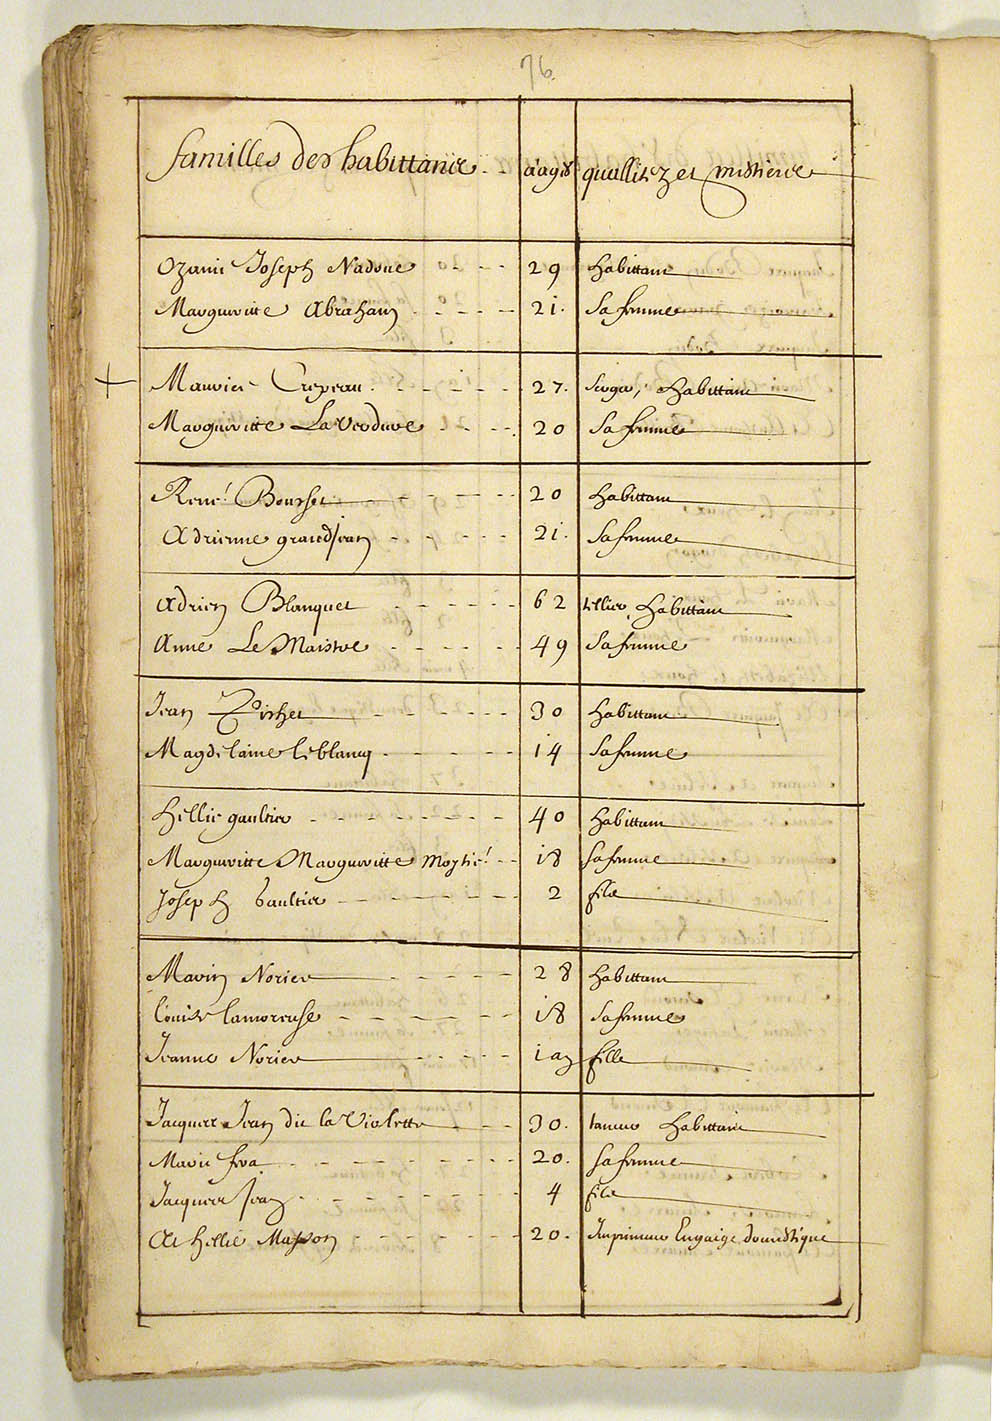 76.
familles des habittans - - aages quallitez et mestiers
Ozanie Joseph Nadeue - - - 29 habittant
Margueritte Abraham - - - - - 21. Sa femme
Maurice Crepeau. - - - - - 27. Habittant
Margueritte La Verdure - - - 20 Sa femme
René Bourset - - - - - 20 habittant
Adrienne grandjean - - - - 21. Sa femme
Adrien Blanquet - - - - - 62 tellier, Habittant
Anne Le Maistre - - - - - 49 Sa femme
Jean Pichet - - - - - 30 habittant
Magdelaine leblancq - - - - - 14 Sa femme
hellie gaultier - - - - - - - - 40 habittant
Margueritte Margueritte Moytié - - 18 Sa femme
Joseph Gaultier - - - - - - - 2 fils
Marin Norier - - - - - 28 habittant
Louise lamoreuse - - - - - - 18 Sa femme
Jeanne Norier - - - - - 1 an fille
Jacques Jean dit la Violette - - - 30. Habittant
Marie fva - - - - - - - - 20. Sa femme
Jacques Jean - - - - - - - - 4 fils
Et hellie Masson - - - - - - 20. Imprimeur Engaigé domestique